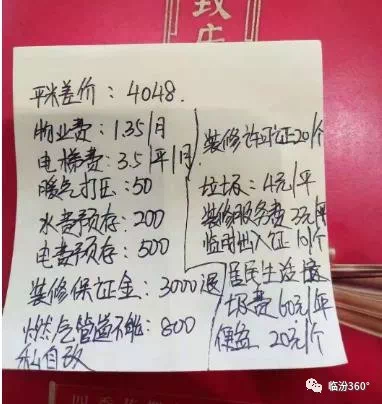 致店
平米差价：4048.
物业费：1.35/月
电梯费：3.5/平/月
暖气打压：50
水费预存：200
电费预存：500
装修保证金：3000退
燃气管道不能：800
私自改
装修许可证20/个
垃圾：4元/平
装修服务费3元/平
临时出入证10/个
居民生活垃
圾费60元/年
便盆20元/个
临汾360°